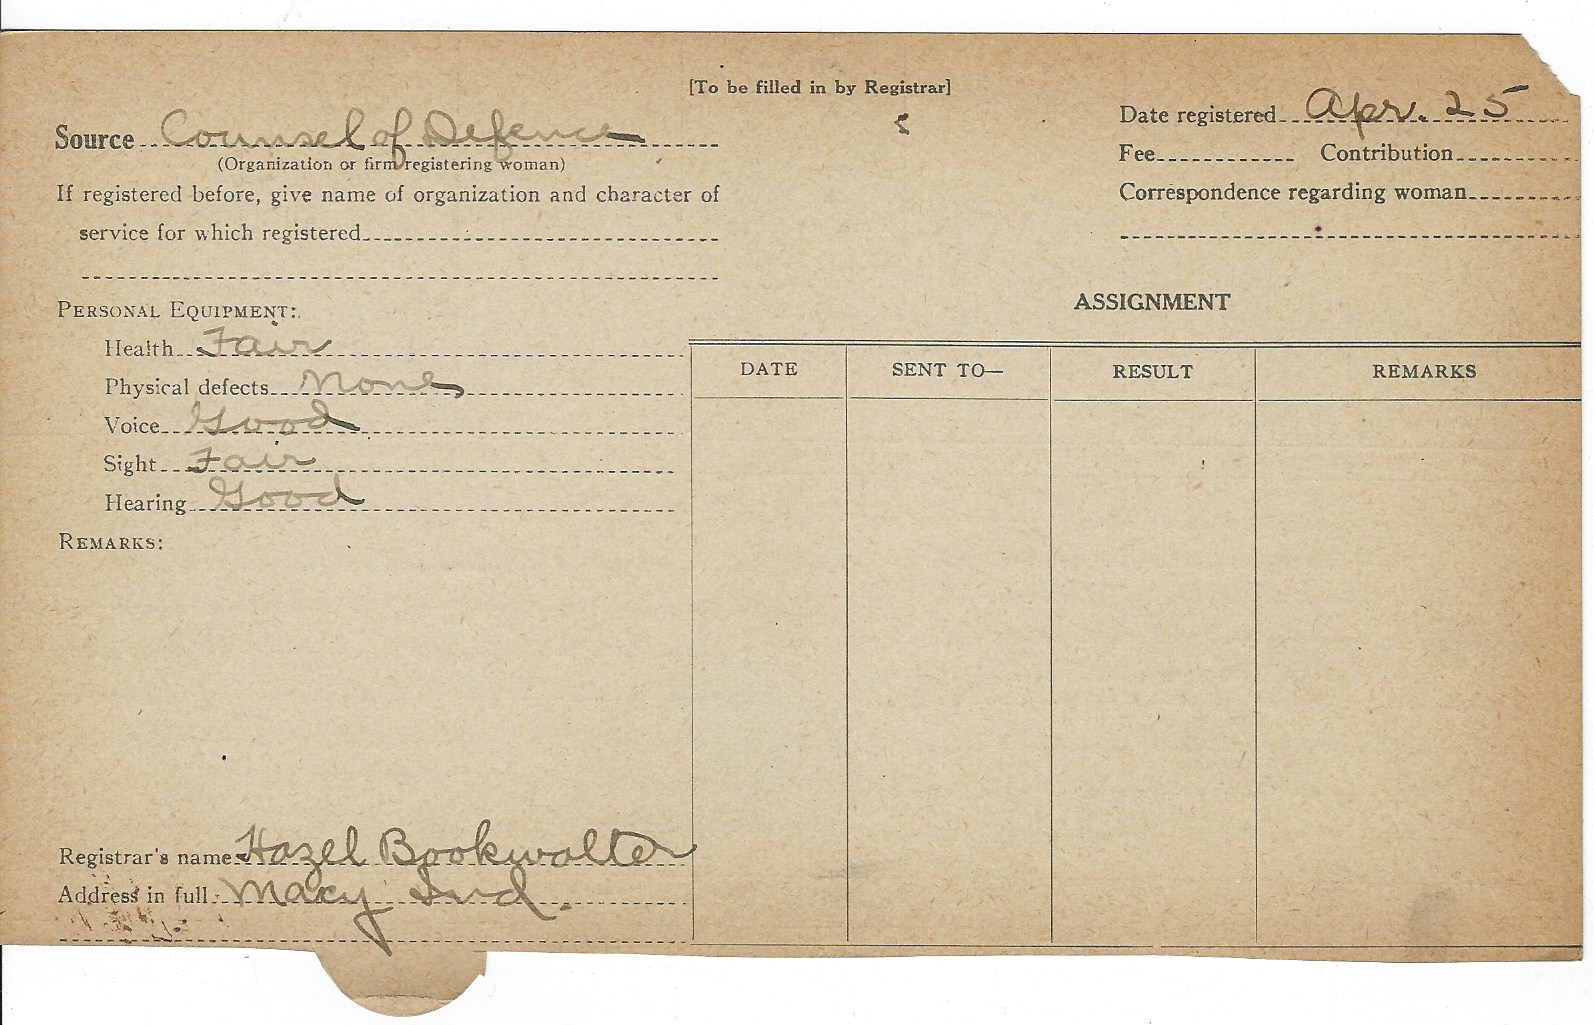 [To be filled in by Registrar]
Source Counsel of Defence
(Organization or firm registering woman)
If registered before, give name of organization and character of
service for which registered
Date registered Apr. 25
Fee Contribution
Correspondence regarding woman
PERSONAL EQUIPMENT:
Health Fair
Physical defects None
Voice Good
Sight Fair
Hearing Good
REMARKS:
ASSIGNMENT
DATE SENT TO— RESULT REMARKS
Registrar's name Hazel Bookwalter
Address in full Macy Ind.